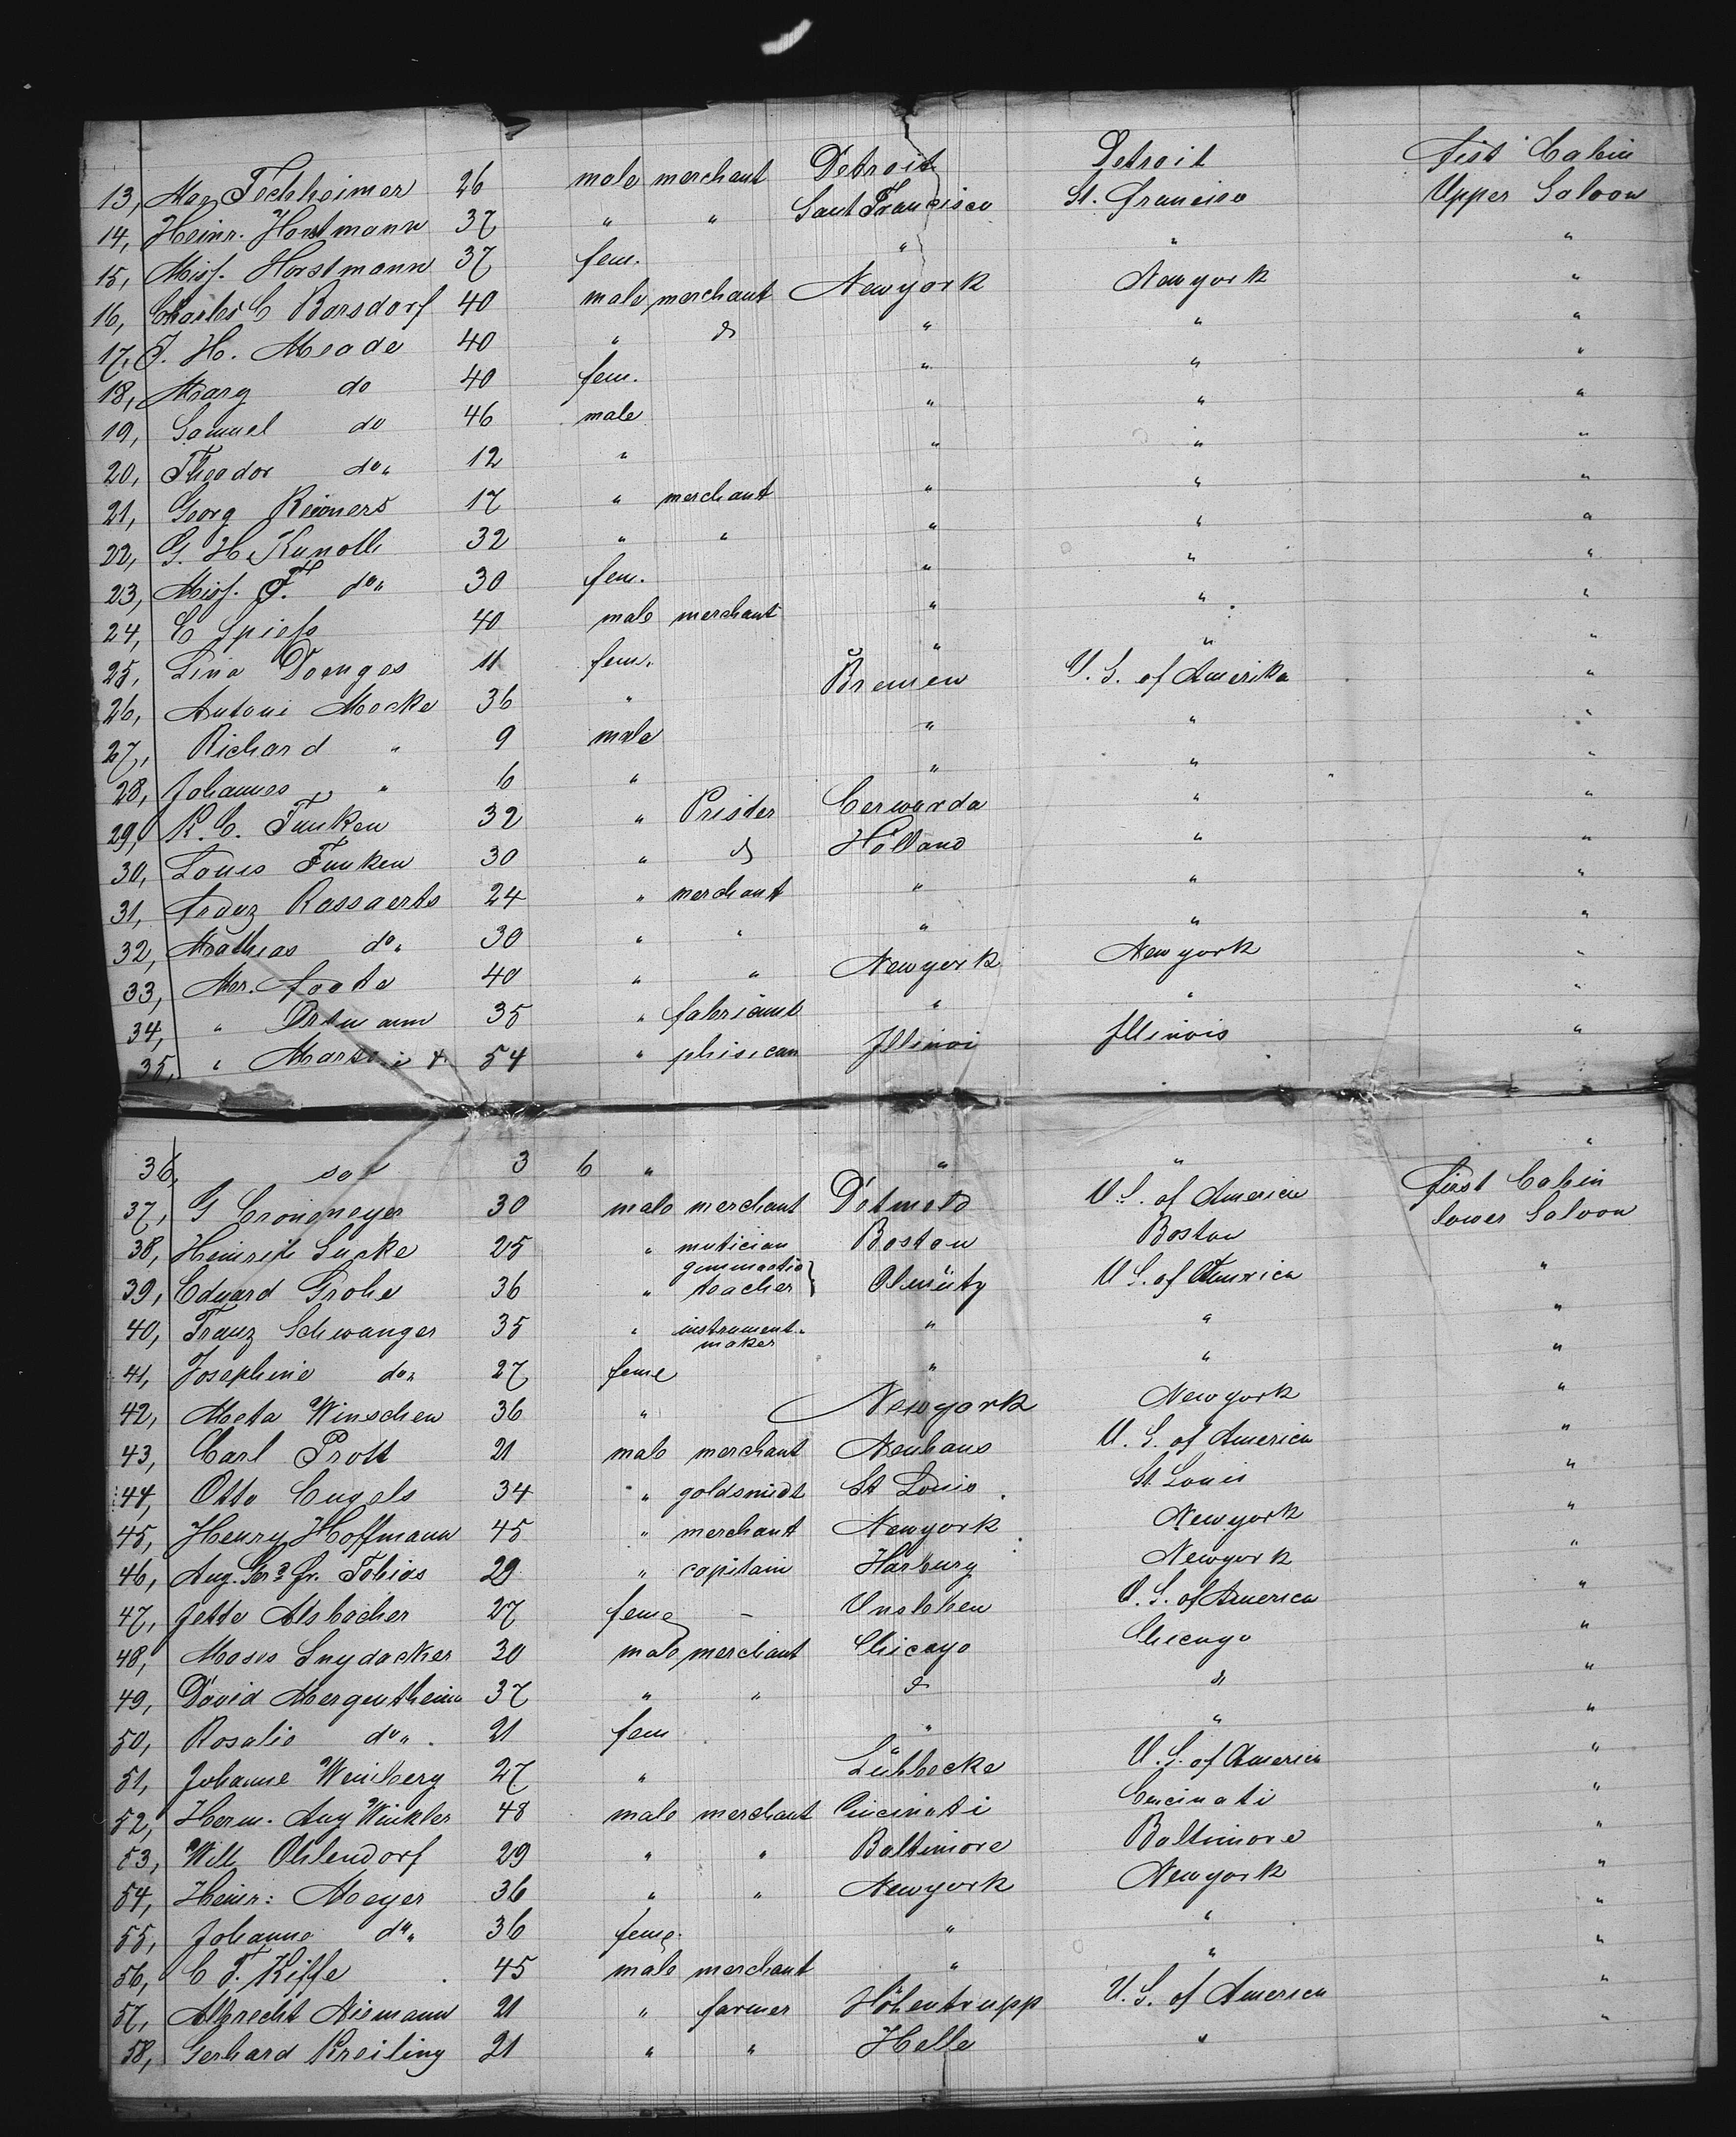 13, Max Fechheimer 26 male merchant Detroit Detroit First Cabin
14, Heinr. Horstmann 37 " " Sant Francisco St. Francisco Upper Saloon
15, Miss. Horstmann 37 fem. " " "
16, Charles C Barsdorf 40 male merchant Newyork Newyork "
17, J. H. Meade 40 " do " " "
18, Marg do 40 fem. " " "
19, Samuel do 46 male " " "
20, Theodor do " 12 " " " "
21, Georg Reiners 17 " merchant " " "
22, G. H. Kunoth 32 " " " " "
23, Miss. F. do " 30 fem. " " "
24, C Spiess 40 male merchant " " "
25, Lina Doenges 11 fem. " " "
26, Antoni Mocke 36 " Bremen U. S. of Amerika "
27, Richard " 9 male " " "
28, Johannes " 6 " " " "
29, R. C. Funken 32 " Prister "
30, Louis Funken 30 " do Holland " "
31, Franz Rossaerts 24 " merchant " " "
32, Mathias do " 30 " " " " "
33, Mr. Foote 40 " " Newyork Newyork "
34, " 35 " fabricant " " "
35, " 54 " phisican Illinoi Illinois "
36, son 3 6 " " " "
37, G Cronemeyer 30 male merchant Detmold U S. of America First Cabin
38, Heinrich Sucke 25 " mutician Boston Boston Lower Saloon
39, Eduard Grohe 36 " gimnactic teacher } Olmütz U S. of America "
40, Franz Schwanger 35 " instrument- maker " " "
41, Josephine do " 27 feme " " "
42, Meta Winschen 36 " Newyork Newyork "
43, Carl Prott 21 male merchant Neuhaus U. S. of America "
44, Otto Engels 34 " goldsmidt St Louis St. Louis "
45, Henry Hoffmann 45 " merchant Newyork Newyork "
46, Aug. Fr. Tobias 29 " capitain Harburg Newyork "
47, Jette Alsbacher 27 feme - Unsleben U. S. of America "
48, Moses Snydacker 30 male merchant Chicago Chicago "
49, David Mergentheim 37 " " do do "
50, Rosalie do " 21 fem " " "
51, Johanne Weinberg 27 " Lübbecke U. S. of America "
52, Herm. Aug Winkler 48 male merchant Cincinati Cincinati "
53, Will Ohlendorf 29 " " Baltimore Baltimore "
54, Heinr: Meyer 36 " " Newyork Newyork "
55, Johanne do " 36 feme. " " "
56, C F. Kiffe 45 male merchant " " "
57, Albrecht Niemann 21 " farmer Höhentrupp U. S. of America "
58, Gerhard Kreiling 21 " " Helle " "